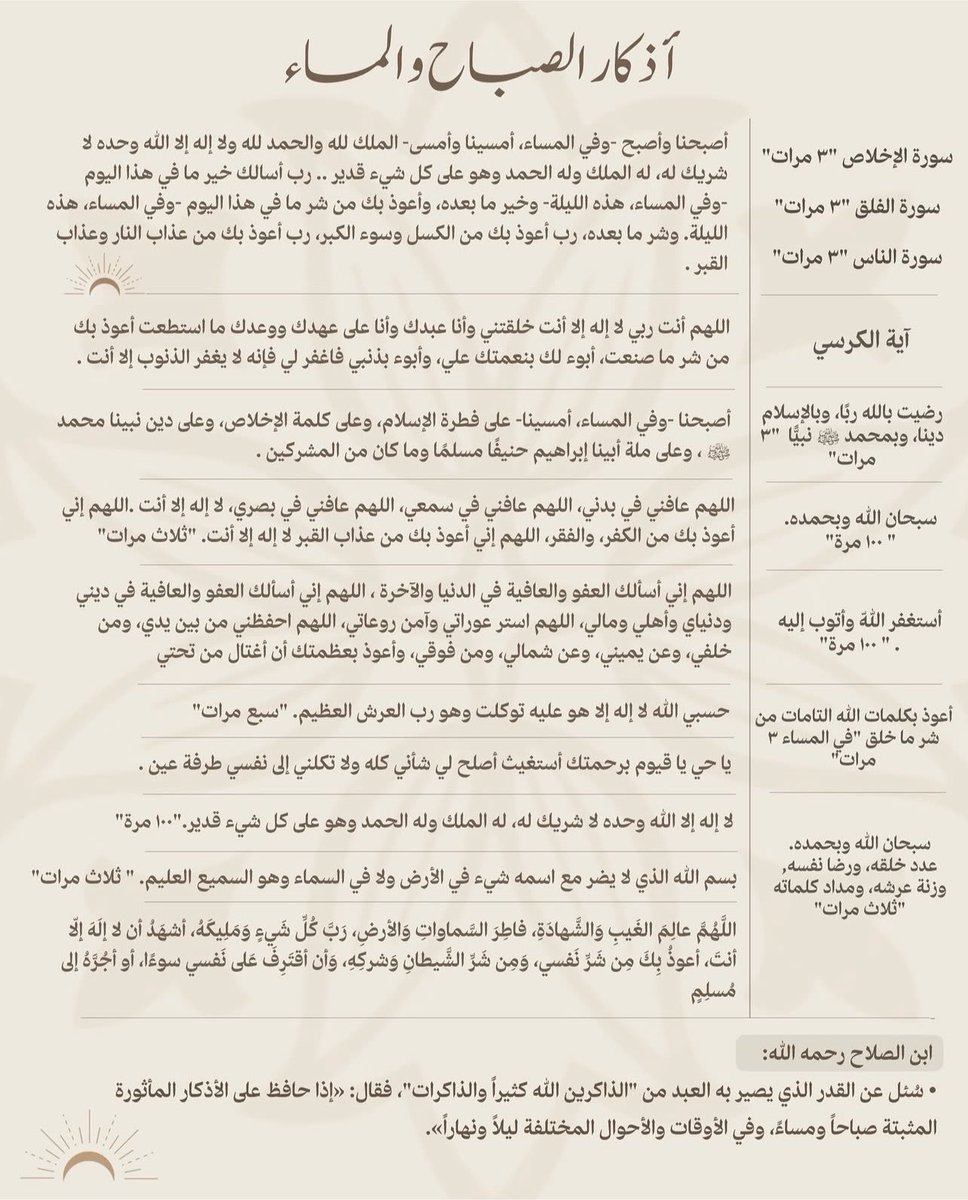 أذكار الصباح والمساء
سورة الإخلاص "٣ مرات"
سورة الفلق "٣ مرات"
سورة الناس "٣ مرات"
آية الكرسي
رضيت بالله ربًا، وبالإسلام
دينا، وبمحمد ﷺ نبيًّا "٣
مرات"
سبحان الله وبحمده.
" ١٠٠ مرة"
أستغفر اللهّ وأتوب إليه
. " ١٠٠ مرة"
أعوذ بكلمات الله التامات من
شر ما خلق "في المساء ٣
مرات"
سبحان الله وبحمده.
عدد خلقه، ورضا نفسه,
وزنة عرشه، ومداد كلماته
"ثلاث مرات"
أصبحنا وأصبح -وفي المساء، أمسينا وأمسى- الملك لله والحمد لله ولا إله إلا الله وحده لا
شريك له، له الملك وله الحمد وهو على كل شيء قدير .. رب أسالك خير ما في هذا اليوم
-وفي المساء، هذه الليلة- وخير ما بعده، وأعوذ بك من شر ما في هذا اليوم -وفي المساء، هذه
الليلة. وشر ما بعده، رب أعوذ بك من الكسل وسوء الكبر، رب أعوذ بك من عذاب النار وعذاب
القبر .
اللهم أنت ربي لا إله إلا أنت خلقتني وأنا عبدك وأنا على عهدك ووعدك ما استطعت أعوذ بك
من شر ما صنعت، أبوء لك بنعمتك علي، وأبوء بذنبي فاغفر لي فإنه لا يغفر الذنوب إلا أنت .
أصبحنا -وفي المساء، أمسينا- على فطرة الإسلام، وعلى كلمة الإخلاص، وعلى دين نبينا محمد
ﷺ ، وعلى ملة أبينا إبراهيم حنيفًا مسلمًا وما كان من المشركين .
اللهم عافني في بدني، اللهم عافني في سمعي، اللهم عافني في بصري، لا إله إلا أنت .اللهم إني
أعوذ بك من الكفر، والفقر، اللهم إني أعوذ بك من عذاب القبر لا إله إلا أنت. "ثلاث مرات"
اللهم إني أسألك العفو والعافية في الدنيا والآخرة ، اللهم إني أسألك العفو والعافية في ديني
ودنياي وأهلي ومالي، اللهم استر عوراتي وآمن روعاتي، اللهم احفظني من بين يدي، ومن
خلفي، وعن يميني، وعن شمالي، ومن فوقي، وأعوذ بعظمتك أن أغتال من تحتي
حسبي الله لا إله إلا هو عليه توكلت وهو رب العرش العظيم. "سبع مرات"
يا حي يا قيوم برحمتك أستغيث أصلح لي شأني كله ولا تكلني إلى نفسي طرفة عين .
لا إله إلا الله وحده لا شريك له، له الملك وله الحمد وهو على كل شيء قدير."١٠٠ مرة"
بسم الله الذي لا يضر مع اسمه شيء في الأرض ولا في السماء وهو السميع العليم. " ثلاث مرات"
اللَّهُمَّ عالِمَ الغَيبِ وَالشَّهادَةِ، فاطِرَ السَّماواتِ وَالأرضِ، رَبَّ كُلِّ شَيءٍ وَمَلِيكَهُ، أشهَدُ أن لا إلَهَ إلّا
أنتَ، أعوذُ بِكَ مِن شَرِّ نَفسي، وَمِن شَرِّ الشَّيطانِ وَشركِهِ، وَأن أقتَرِفَ عَلى نَفسي سوءًا، أو أجُرَّهُ إلى
مُسلِمٍ
ابن الصلاح رحمه الله:
• سُئل عن القدر الذي يصير به العبد من "الذاكرين الله كثيراً والذاكرات"، فقال: «إذا حافظ على الأذكار المأثورة
المثبتة صباحاً ومساءً، وفي الأوقات والأحوال المختلفة ليلاً ونهاراً».